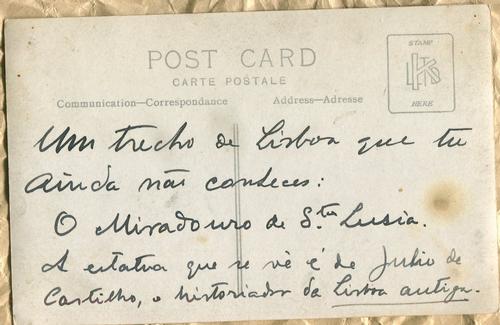 POST CARD
CARTE POSTALE
STAMP
HERE
Communication—Correspondance
Address—Adresse
Um trecho de Lisboa que tu
ainda não conheces:
O Miradouro de S.ta Lusia.
A estatua que se vê é de Julio de
Castilho, o historiador da Lisboa antiga.